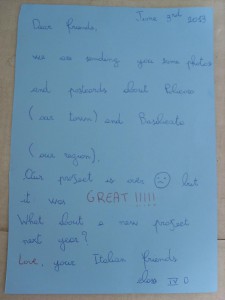 June 3rd 2013
Dear friends,
we are sending you some photos
and postcards about
(our town) and Basilicata
(our region).
Our project is over but
it was GREAT !!!!!
What about a new project
next year?
Love, your Italian friends
class IV D